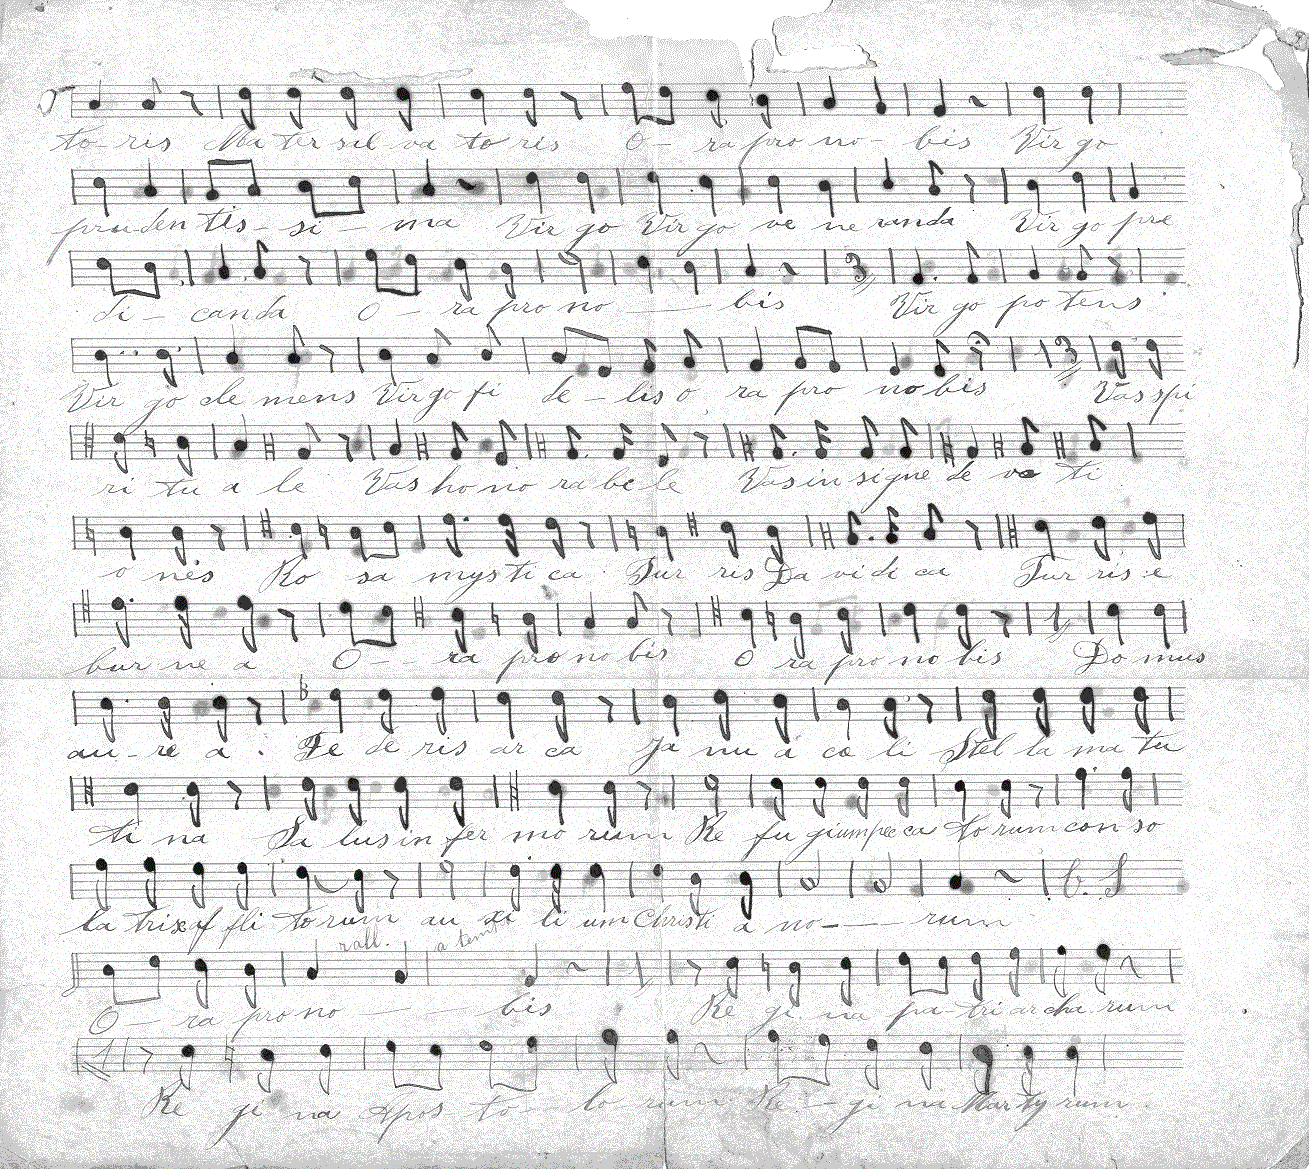 to-ris Ma ter sal-va to ris O- ra pro no- bis Vir go
pru den tis- si- ma Vir go Vir go ve ne randa Vir go pre
di- canda O- ra pro no - bis 3 Vir go po tens
Vir go cle mens Virgo fi de-lis o ra pro nobis 3 Vas spi
ri tu a le Vas ho no ra be le Vas in signe de vo ti
o nis Ro sa mys ti ca Tur ris Da vi di ca Tur ris e
bur ne a O-- ra pro no bis O ra pro no bis 1 Do mus
au-re a Fe de ris ar ca Ja nu a cœ li Stel la ma tu
ti na Sa lus in fer mo rum Re fu gi um pec ca torum con so
la trix af fli torum au xi li um Christi a no--- rum
rall. a tempo
O- ra pro no - bis Re gi na pa-tri ar cha rum
1 Re gi na Apos to- lo rum Re- gi na Mar ty rum